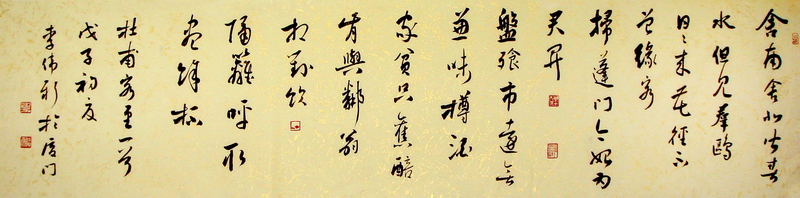 舍南舍北皆春
水但见羣鷗
日々来花径不
曾缘客
掃蓬门今始为
君开
盤飧市遠無
兼味樽酒
家貧只舊醅
肯與鄰翁
相对饮
隔籬呼取
尽馀杯
杜甫客至一首
戊子初夏
李伟新於厦门